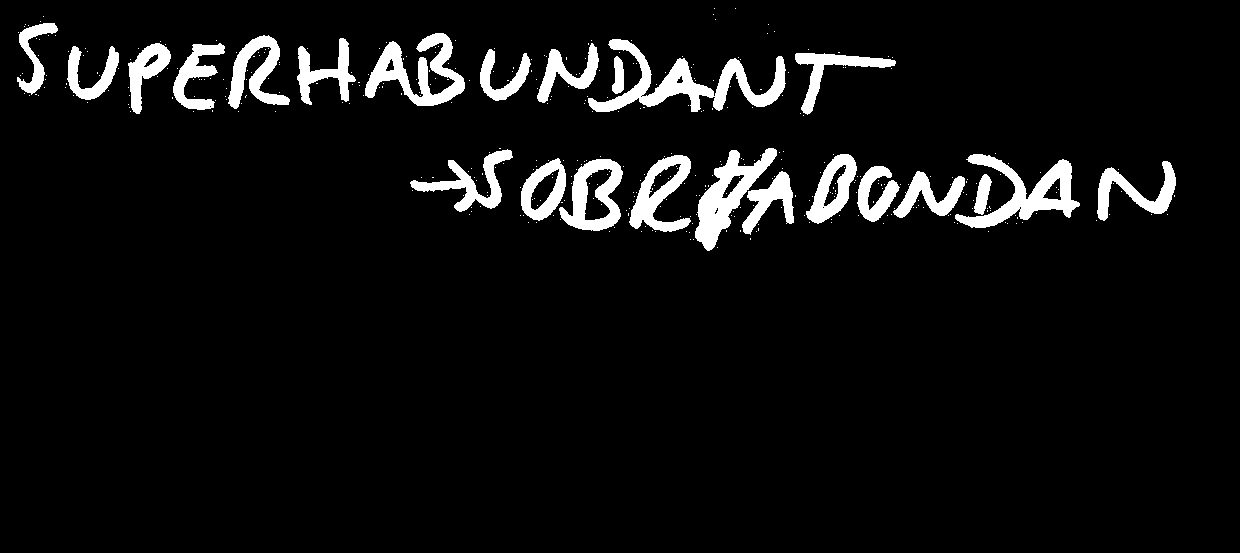 SUPERHABUNDANT
→SOBRHABONDAN